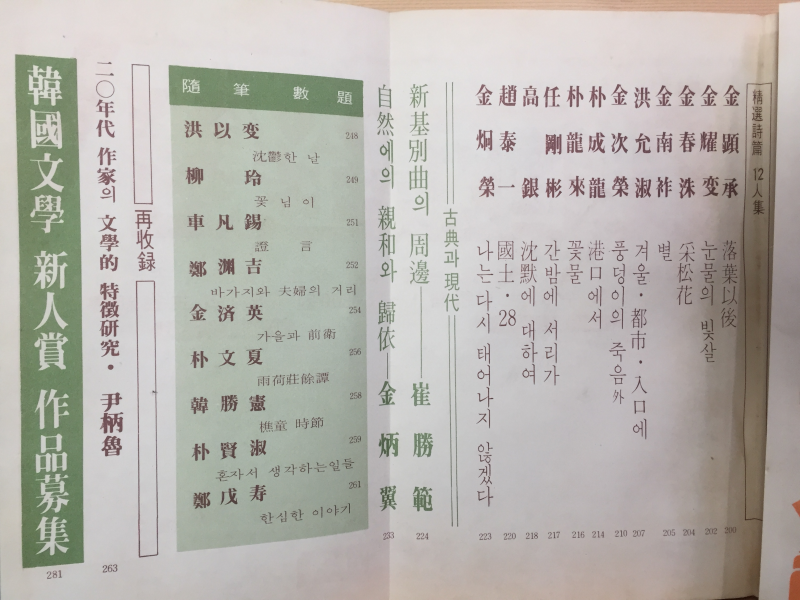 精選詩篇 12人集
金顯承 落葉以後 200
金耀変 눈물의 빛살 202
金春洙 采松花 204
金南祚 별 205
洪允淑 겨울・都市・入口에 207
金次榮 풍덩이의 죽음外 210
朴成龍 港口에서 214
朴龍來 꽃물 216
任剛彬 간밤에 서리가 217
高銀 沈默에 대하여 218
趙泰一 國土・28 220
金炯榮 나는 다시 태어나지 않겠다 223
古典과 現代
新基別曲의 周邊――崔勝範 224
自然에의 親和와 歸依―金炳翼 233
隨筆數題
洪以変 248
沈鬱한 날
柳玲 249
꽃 님 이
車凡錫 251
證言
鄭淵吉 252
바가지와 夫婦의 거리
金済英 254
가을과 前衛
朴文夏 256
雨荷莊餘譚
韓勝憲 258
樵童 時節
朴賢淑 259
혼자서 생각하는일들
鄭戊寿 261
한심한 이야기
再收録
二〇年代 作家의 文學的 特徴研究・尹柄魯 263
韓國文學 新人賞 作品募集 281